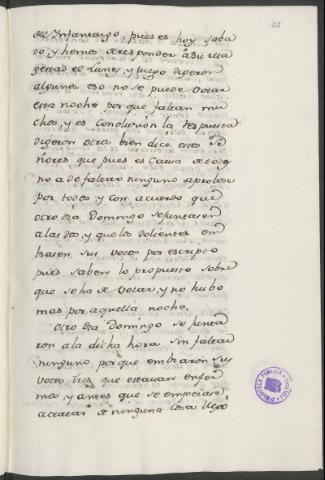 23
del Infantazgo, pues es hoy saba
do, y hemos de responder à Su Ma
gestad el Lunes, y luego dixeron
algunos eso no se puede votar
esta noche porque faltan mu
chos, y es conclusion la respuesta
dixeron otros bien dice, estos Se
ñores que pues es causa de todos
no a de faltar ninguno aprobose
por todos y con acuerdo que
otro dia Domingo se juntasen
a las dos, y que los dolientes em
biasen sus votos por escripto
pues saben lo propuesto sobre
que se ha de votar, y no hubo
mas por aquella noche.
Otro dia Domingo se junta
ron ala dicha hora sin faltar
ninguno porque embiaron sus
votos tres que estavan enfer
mos, y antes que se empezase
a tratar de ninguna cosa llegó
BIBLIOTECA PUBLICA
TOLEDO